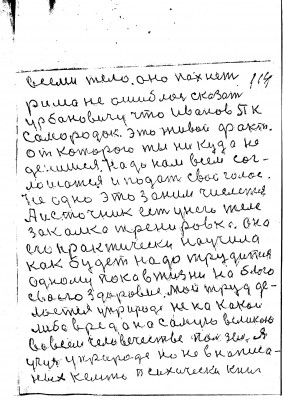 всеми тело. оно пахнет 114
рима не ошиблся сказат
урбановичу что Иванов ПК
самородок. Это живой факт.
от которого ты никуда не
денишся. Надо нам всем сог-
лосится и подат свой голос.
Не одно это за ним числится
А источник ест у него теле
закалка тренировка. она
его практически научила
как будет надо трудится
одному пока в жизни на благо
своего здоровие. Мой труд де-
лается в природе не на какой
либо вред а на самую великою
во всем человечестве пользу. Я
учил в природе но не в написа-
ных кемто психически книг